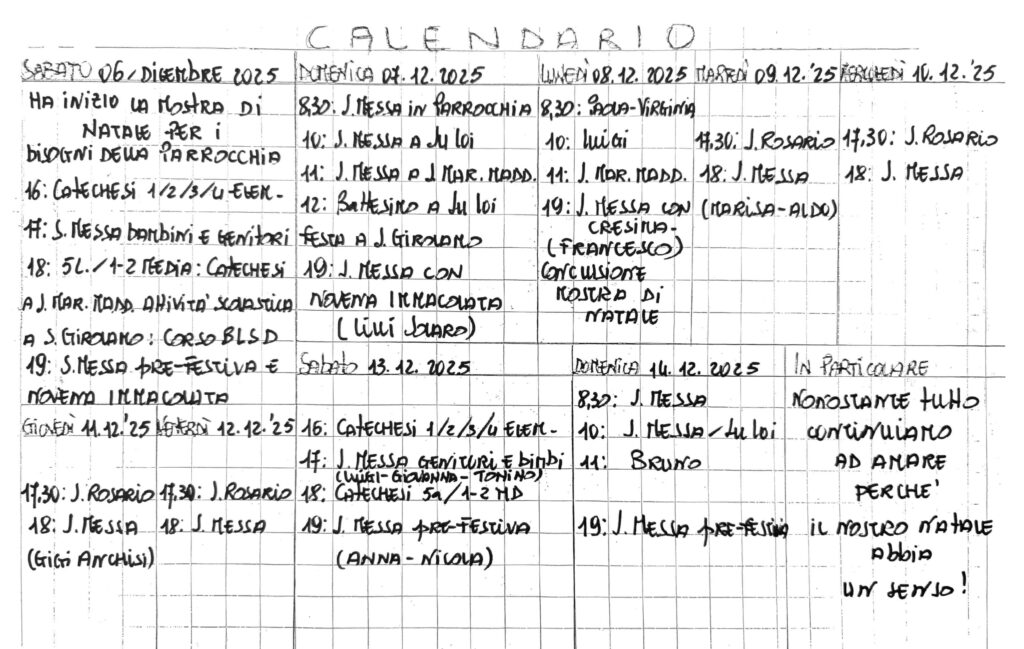 CALENDARIO
SABATO 06/DICEMBRE 2025
HA INIZIO LA MOSTRA DI
NATALE PER I
BISOGNI DELLA PARROCCHIA
16: CATECHESI 1/2/3/4 ELEM-
17: S. MESSA BAMBINI E GENITORI
18: 5L./1-2 MEDIA: CATECHESI
A S. MAR. MADD. ATTIVITA' SCOLASTICA
A S. GIROLAMO: CORSO BLSD
19: S. MESSA PRE-FESTIVA E
NOVENA IMMACOLATA
DOMENICA 07.12.2025
8,30: S. MESSA IN PARROCCHIA
10: S. MESSA A SU LOI
11: S. MESSA A S MAR. MADD.
12: BATTESIMO A SU LOI
FESTA A S. GIROLAMO
19: S. MESSA CON
NOVENA IMMACOLATA
(LILLI SOLARO)
LUNEDÌ 08.12.2025
8,30: PAOLA-VIRGINIA
10: LUIGI
11: S. MAR. MADD.
19: S. MESSA CON
CRESIMA-
(FRANCESCO)
CONCLUSIONE
MOSTRA DI
NATALE
MARTEDÌ 09.12.'25
17,30: S. ROSARIO
18: S. MESSA
(MARISA-ALDO)
MERCOLEDÌ 10.12.'25
17,30: S. ROSARIO
18: S. MESSA
GIOVEDÌ 11.12.'25
17,30: S. ROSARIO
18: S. MESSA
(GIGI ANCHISI)
VENERDÌ 12.12.'25
17,30: S. ROSARIO
18: S. MESSA
SABATO 13.12.2025
16: CATECHESI 1/2/3/4 ELEM-
17: S. MESSA GENITORI E BIMBI
(LUIGI-GIOVANNA-TONINO)
18: CATECHESI 5a/1-2 MD
19: S. MESSA PRE-FESTIVA
(ANNA-NICOLA)
DOMENICA 14.12.2025
8,30: S. MESSA
10: S. MESSA-SU LOI
11: BRUNO
19: S. MESSA PRE-FESTIVA
IN PARTICOLARE
NONOSTANTE TUTTO
CONTINUIAMO
AD AMARE
PERCHE'
IL NOSTRO NATALE
ABBIA
UN SENSO!